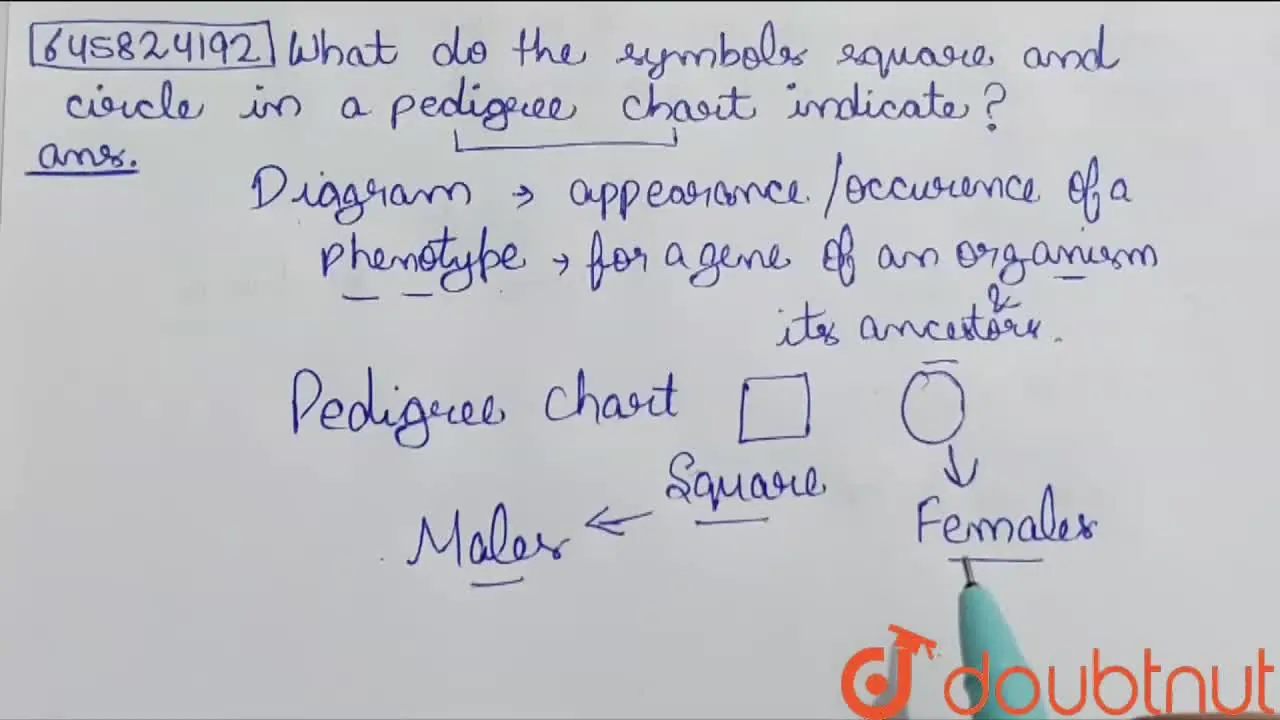 645824192 What do the symbols square and
circle in a pedigree chart indicate?
ans.
Diagram → appearance/occurence of a
phenotype → for a gene of an organism
&
its ancestors.
Pedigree chart
Square
Males ←
Females
doubtnut